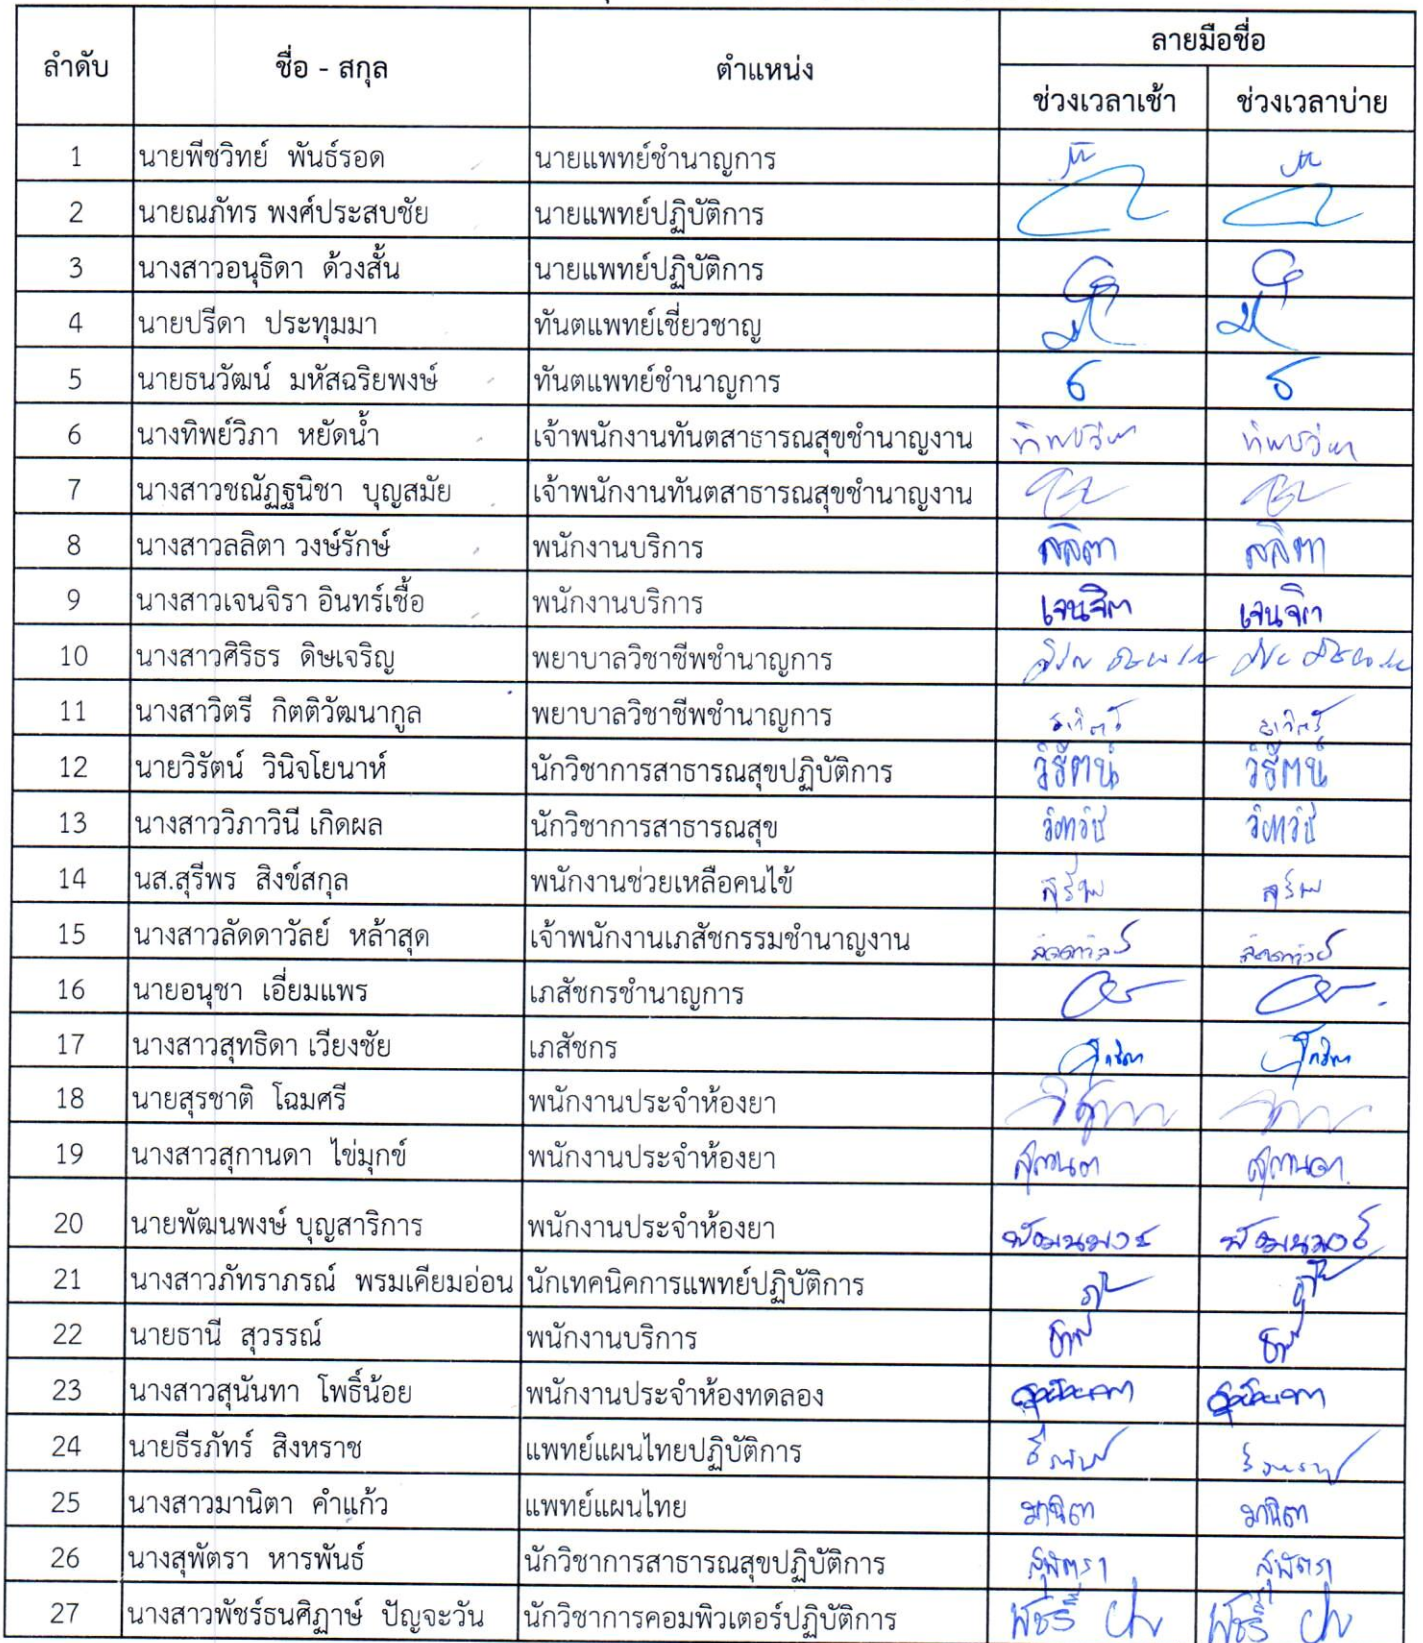 ลายมือชื่อ
ลำดับ ชื่อ - สกุล ตำแหน่ง
ช่วงเวลาเช้า ช่วงเวลาบ่าย
1 นายพีชวิทย์ พันธ์รอด นายแพทย์ชำนาญการ
2 นายณภัทร พงศ์ประสบชัย นายแพทย์ปฏิบัติการ
3 นางสาวอนุธิดา ด้วงสั้น นายแพทย์ปฏิบัติการ
4 นายปรีดา ประทุมมา ทันตแพทย์เชี่ยวชาญ
5 นายธนวัฒน์ มหัสฉริยพงษ์ ทันตแพทย์ชำนาญการ ธ ธ
6 นางทิพย์วิภา หยัดน้ำ เจ้าพนักงานทันตสาธารณสุขชำนาญงาน ทิพย์วิภา ทิพย์วิภา
7 นางสาวชณัฏฐนิชา บุญสมัย เจ้าพนักงานทันตสาธารณสุขชำนาญงาน
8 นางสาวลลิตา วงษ์รักษ์ พนักงานบริการ ลลิตา ลลิตา
9 นางสาวเจนจิรา อินทร์เชื้อ พนักงานบริการ เจนจิรา เจนจิรา
10 นางสาวศิริธร ดิษเจริญ พยาบาลวิชาชีพชำนาญการ
11 นางสาวิตรี กิตติวัฒนากูล พยาบาลวิชาชีพชำนาญการ สาวิตรี สาวิตรี
12 นายวิรัตน์ วินิจโยนาห์ นักวิชาการสาธารณสุขปฏิบัติการ วิรัตน์ วิรัตน์
13 นางสาววิภาวินี เกิดผล นักวิชาการสาธารณสุข วิภาวินี วิภาวินี
14 นส.สุรีพร สิงข์สกุล พนักงานช่วยเหลือคนไข้ สุรีพร สุรีพร
15 นางสาวลัดดาวัลย์ หล้าสุด เจ้าพนักงานเภสัชกรรมชำนาญงาน ลัดดาวัลย์ ลัดดาวัลย์
16 นายอนุชา เอี่ยมแพร เภสัชกรชำนาญการ
17 นางสาวสุทธิดา เวียงชัย เภสัชกร
18 นายสุรชาติ โฉมศรี พนักงานประจำห้องยา
19 นางสาวสุกานดา ไข่มุกข์ พนักงานประจำห้องยา สุกานดา สุกานดา
20 นายพัฒนพงษ์ บุญสาริการ พนักงานประจำห้องยา พัฒนพงษ์ พัฒนพงษ์
21 นางสาวภัทราภรณ์ พรมเคียมอ่อน นักเทคนิคการแพทย์ปฏิบัติการ
22 นายธานี สุวรรณ์ พนักงานบริการ ธานี ธานี
23 นางสาวสุนันทา โพธิ์น้อย พนักงานประจำห้องทดลอง สุนันทา สุนันทา
24 นายธีรภัทร์ สิงหราช แพทย์แผนไทยปฏิบัติการ
25 นางสาวมานิตา คำแก้ว แพทย์แผนไทย มานิตา มานิตา
26 นางสุพัตรา หารพันธ์ นักวิชาการสาธารณสุขปฏิบัติการ สุพัตรา สุพัตรา
27 นางสาวพัชร์ธนศิฏาษ์ ปัญจะวัน นักวิชาการคอมพิวเตอร์ปฏิบัติการ